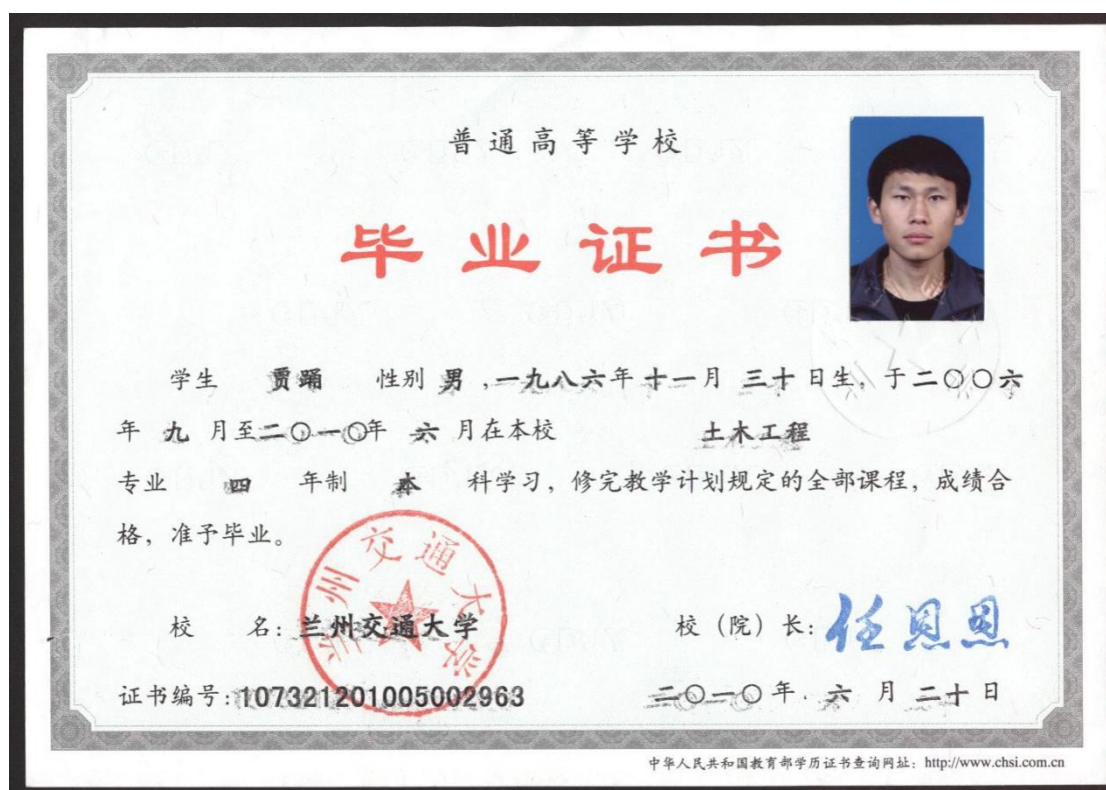 普通高等学校
毕业证书
学生 贾踊 性别 男 ,一九八六年 十一月 三十 日生, 于二〇〇六
年 九 月至二〇一〇年 六 月在本校 土木工程
专业 四 年制 本 科学习, 修完教学计划规定的全部课程, 成绩合
格, 准予毕业。
兰州交通大学
校 名: 兰州交通大学 校 (院) 长: 任恩恩
证书编号: 107321201005002963 二〇一〇 年 六 月 二十 日
中华人民共和国教育部学历证书查询网址: http://www.chsi.com.cn